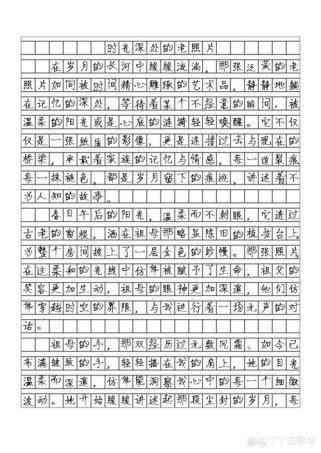 时光深处的老照片
在岁月的长河中缓缓流淌，那张泛黄的老
照片如同被时间精心雕琢的艺术品，静静地躺
在记忆的深处，等待着某个不经意的瞬间，被
温柔的阳光或是心底的涟漪轻轻唤醒。它不仅
仅是一张纸质的影像，更是连接过去与现在的
桥梁，承载着家族的记忆与情感，每一道裂痕
每一抹褪色，都是岁月留下的痕迹，讲述着不
为人知的故事。
春日午后的阳光，温柔而不刺眼，它透过
古老的窗棂，洒在祖母那略显陈旧的梳妆台上，
为整个房间披上了一层金色的纱幔。那张照片
在这柔和的光线中仿佛被赋予了生命，祖父的
笑容更加生动，祖母的眼神更加深邃，他们仿
佛穿越时空的界限，与我进行着一场无声的对
话。
祖母的手，那双经历过无数风霜、如今已
布满皱纹的手，轻轻搭在我的肩上，她的目光
温柔而深邃，仿佛能洞察我心中的每一个细微
波动。她开始缓缓讲述起那段尘封的岁月，每